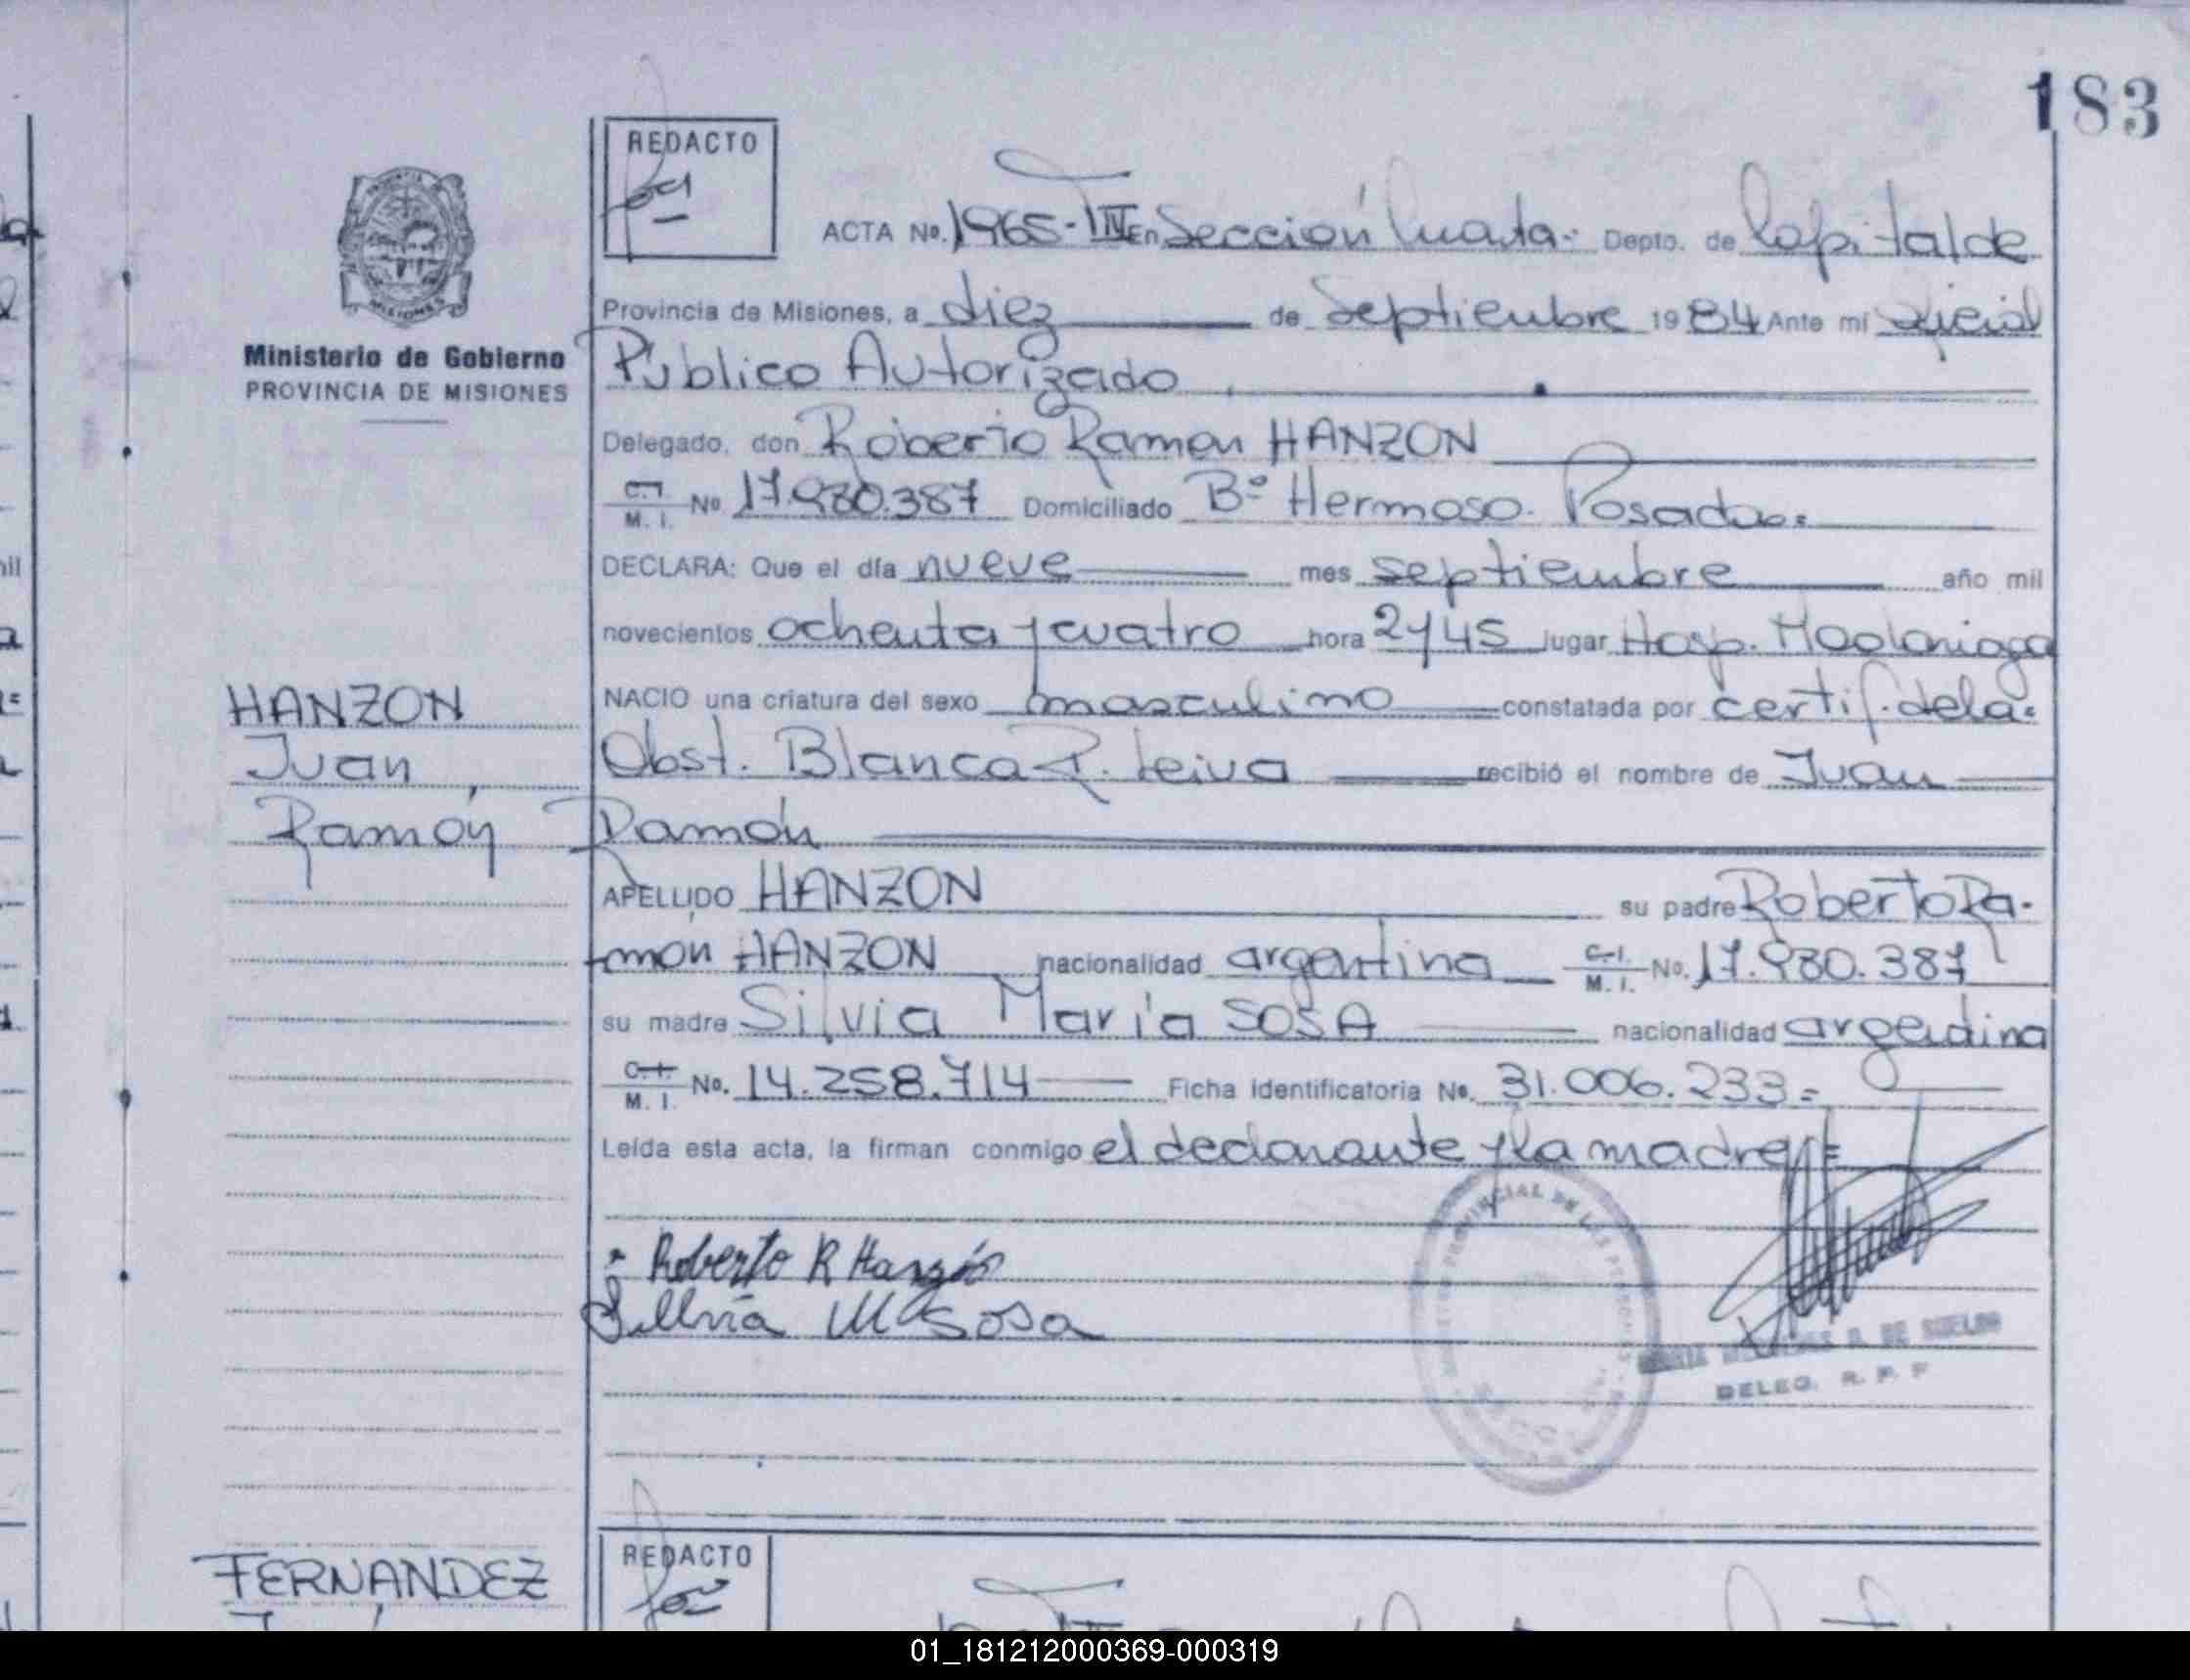 183
REDACTO
ACTA No. 1965-TIV En Sección Cuarta- Depto. de Capital de
Provincia de Misiones, a diez de Septiembre 1984 Ante mí Oficial
Ministerio de Gobierno
PROVINCIA DE MISIONES
Público Autorizado
Delegado, don Roberto Ramon HANZON
C.I. M. I. No 17.980.387 Domiciliado Bº Hermoso. Posadas.
DECLARA: Que el día nueve mes septiembre año mil
novecientos ochenta y cuatro hora 2y45 lugar Hosp. Madariaga
NACIO una criatura del sexo masculino constatada por certif. de la
HANZON
Juan
Ramón
Obst. Blanca R. Leiva recibió el nombre de Juan
Ramón
APELLIDO HANZON su padre Roberto Ra-
món HANZON nacionalidad argentina C.I. M. I. No. 17.980.387
su madre Silvia María SOSA nacionalidad argentina
C.I. M. I. No. 14.258.714 Ficha Identificatoria No. 31.006.233=
Leída esta acta, la firman conmigo el declarante y la madre
Roberto R Hanzón
Sillvia M Sosa
PROVINCIAL DE LAS PERSONAS
DE SUELDO
DELEG. R. P. P
FERNANDEZ
REDACTO
01_181212000369-000319